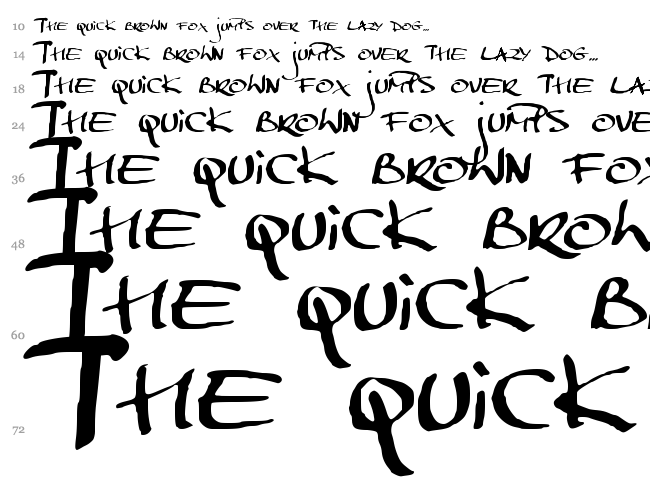 10 The quick brown fox jumps over the lazy dog...
14 The quick brown fox jumps over the lazy dog...
18 The quick brown fox jumps over the la
24 The quick brown fox jumps ove
36 The quick brown fox
48 The quick brow
60 The quick b
72 The quick